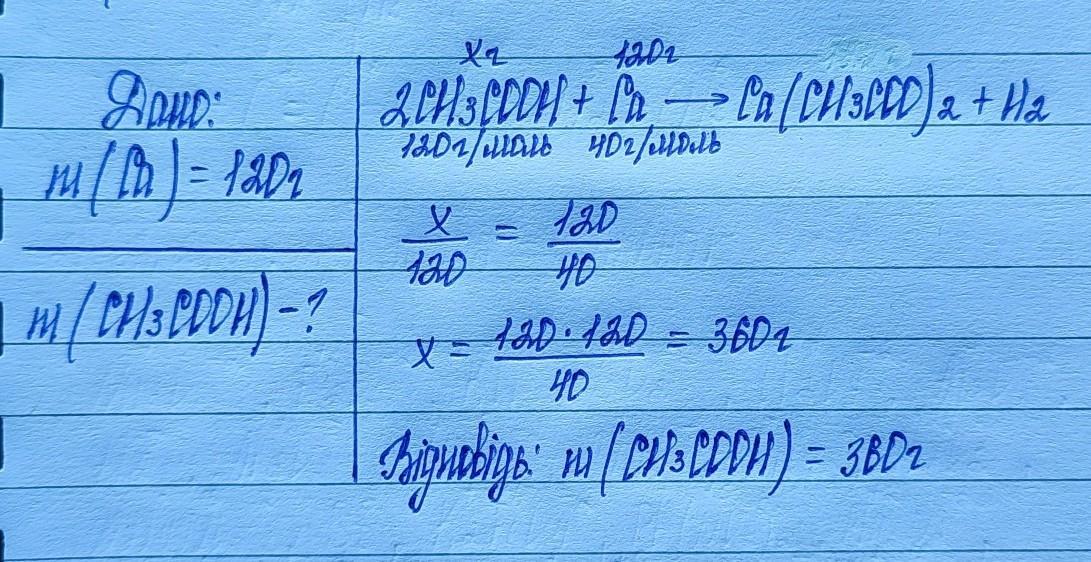 Дано:
m(Ca) = 120г
m(CH3COOH) - ?
xг 120г
2CH3COOH + Ca → Ca(CH3COO)2 + H2
120г/моль 40г/моль
x/120 = 120/40
x = 120·120/40 = 360г
Відповідь: m(CH3COOH) = 360г